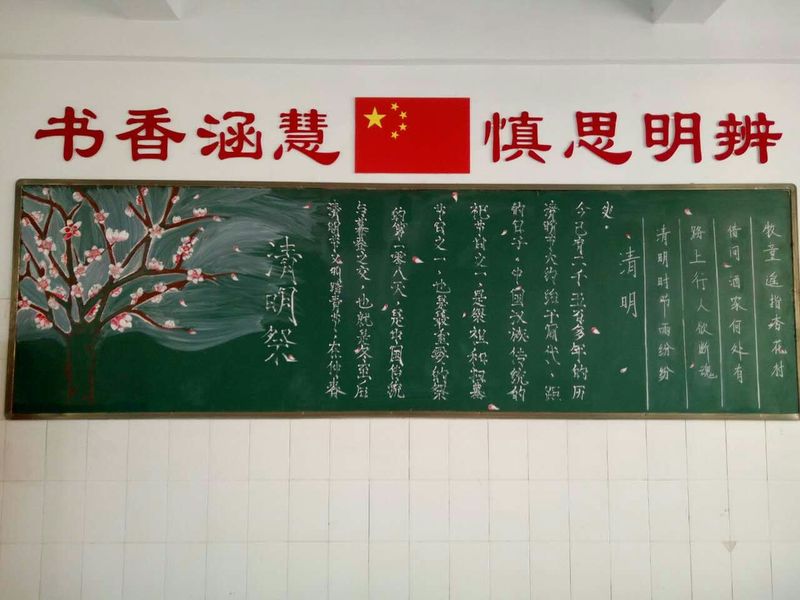 书香涵慧
慎思明辨
清明祭
清明节又叫踏青节,在仲春
与暮春之交,也就是冬至后
的第一零八天,是中国传统
节日之一,也是最重要的祭
祀节日之一,是祭祖和扫墓
的日子。中国汉族传统的
清明节大约始于周代,距
今已有二千五百多年的历
史。
清明
清明时节雨纷纷
路上行人欲断魂
借问酒家何处有
牧童遥指杏花村